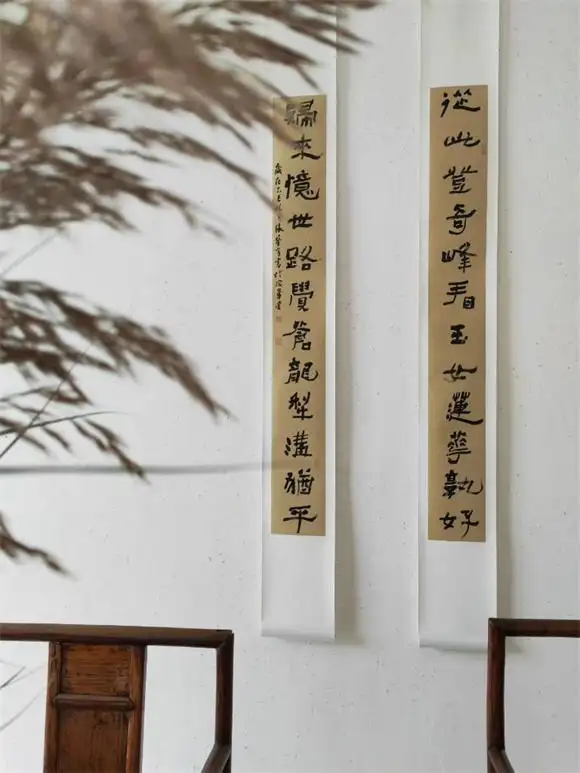 從此登奇峰看玉女蓮華孰好
歸來憶世路覺蒼龍犁溝猶平
歲在